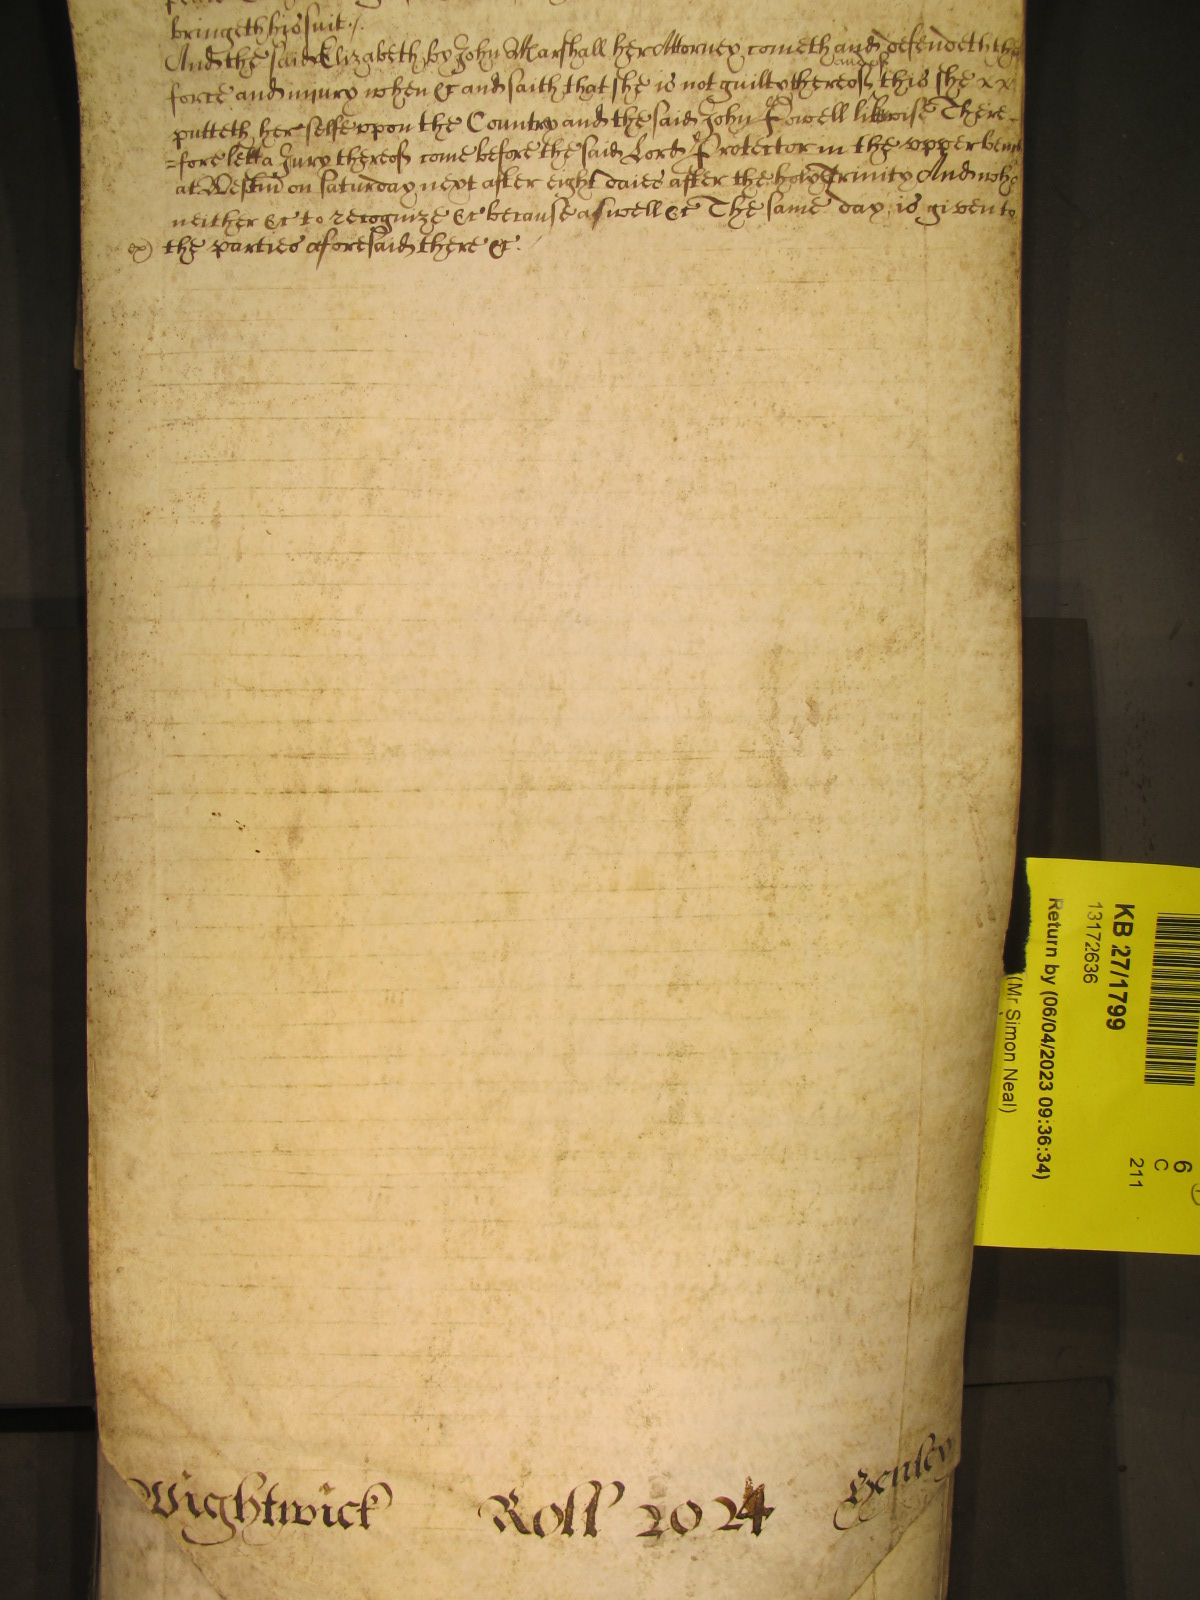 bringeth his suit ./.
And the said Elizabeth by John Marshall her Attorney cometh and defendeth the
force and iniury when &c and saith that she is not guilty thereof and of this she
putteth her selfe vpon the Country and the said John Powell likewise There-
=fore lett a Jury thereof come before the said Lord Protector in the vpper bench
at Westm on saturday next after eight daies after the holy Trinity And who
neither &c to recognize &c because aswell &c The same day is given to
the parties aforesaid there &c.
Wightwick Roll 2024 Henley
KB 27/1799
13172636
Return by (06/04/2023 09:36:34)
(Mr Simon Neal)
6
C
211